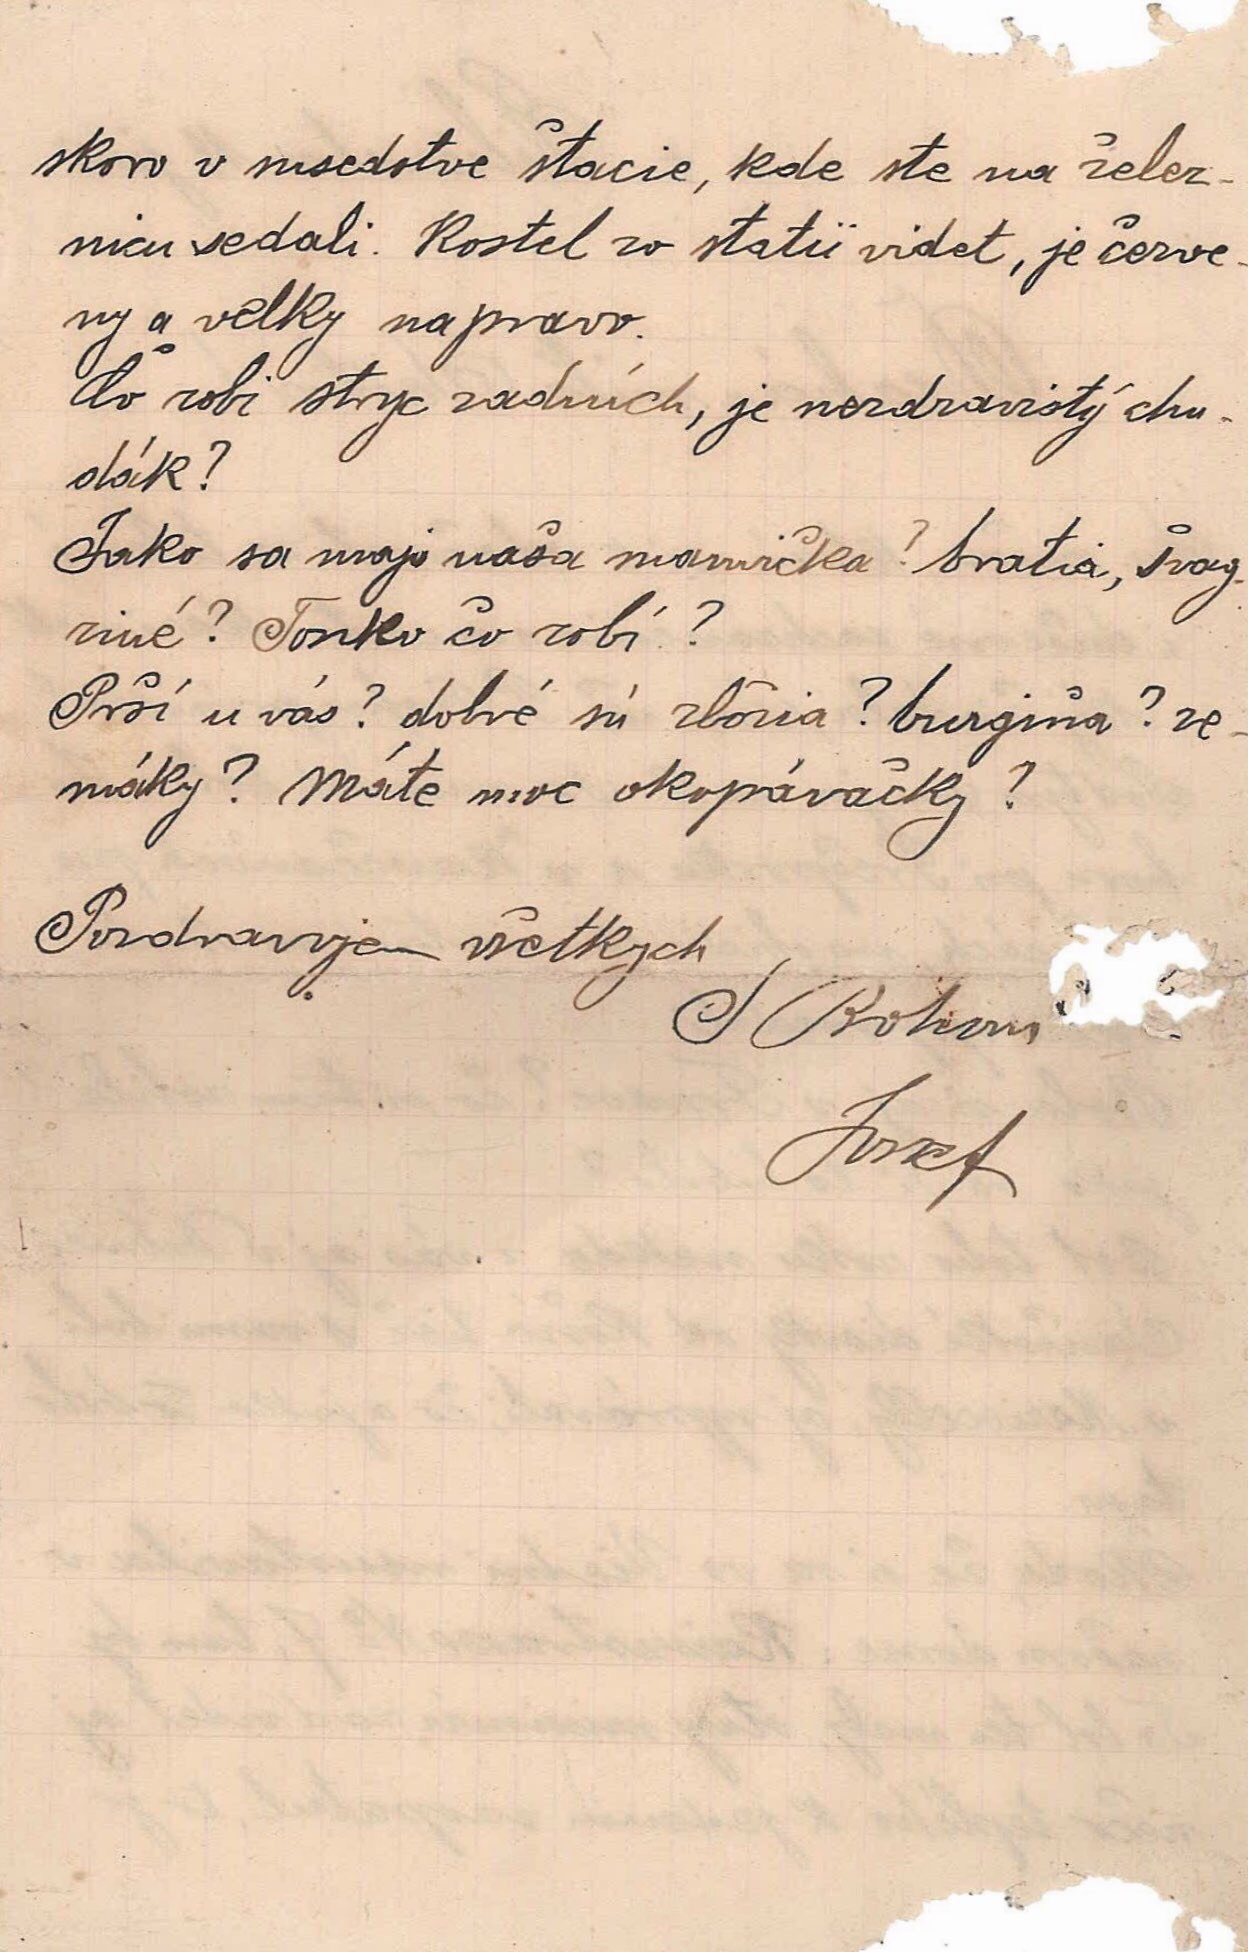 skoro v susedstve štacie, kde ste na želez-
nicu sedali. Kostel zo statii videt, je červe-
ny a velky napravo.
Čo robi stryc zadních, je nezdravistý chu-
dák?
Jako sa majo naša mamička? bratia, švag-
riné? Tonko čo robí?
Prší u vás? dobré sú zbožia? burgiňa? ze-
máky? Máte moc okopávačky?
Pozdravujem všetkych
S Bohom
Jozef